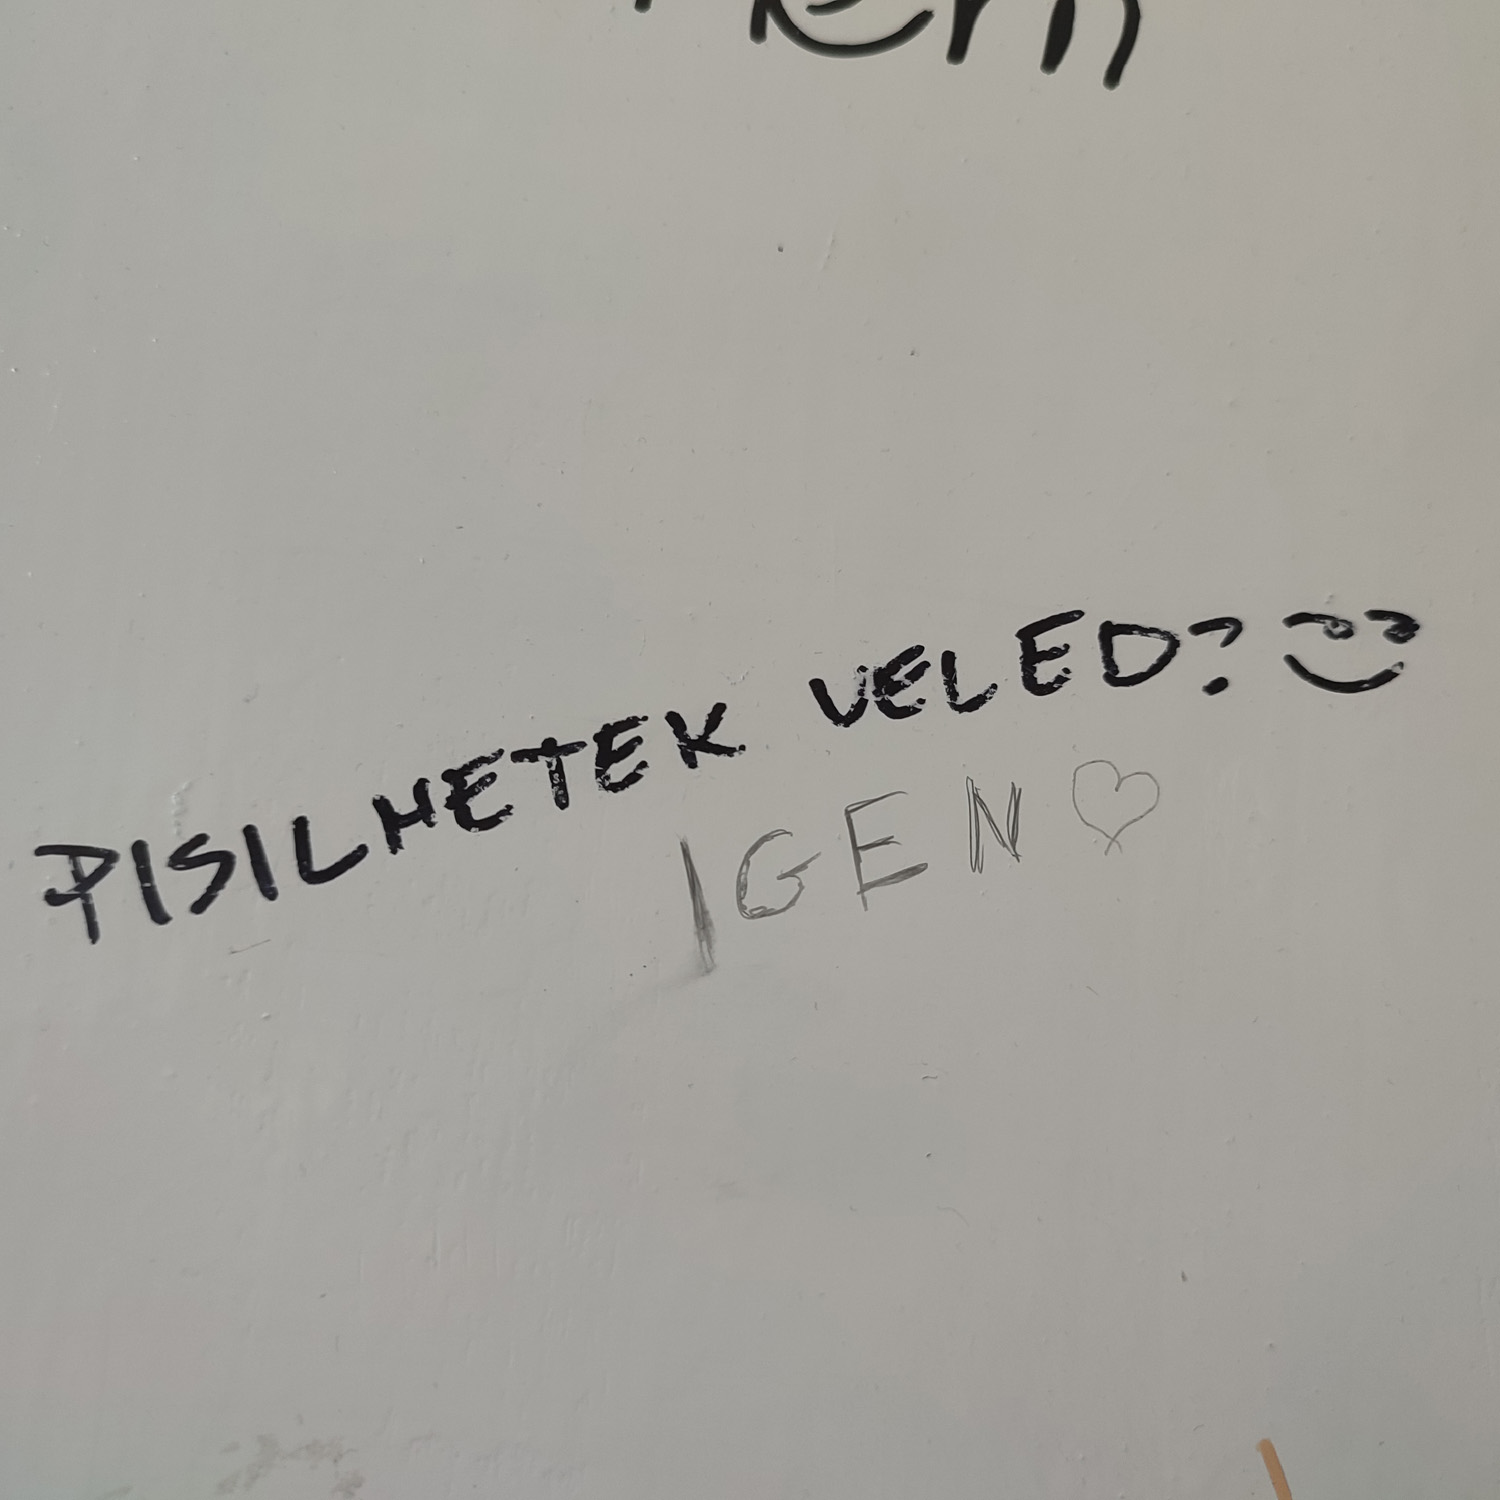 PISILHETEK VELED?
IGEN ♡